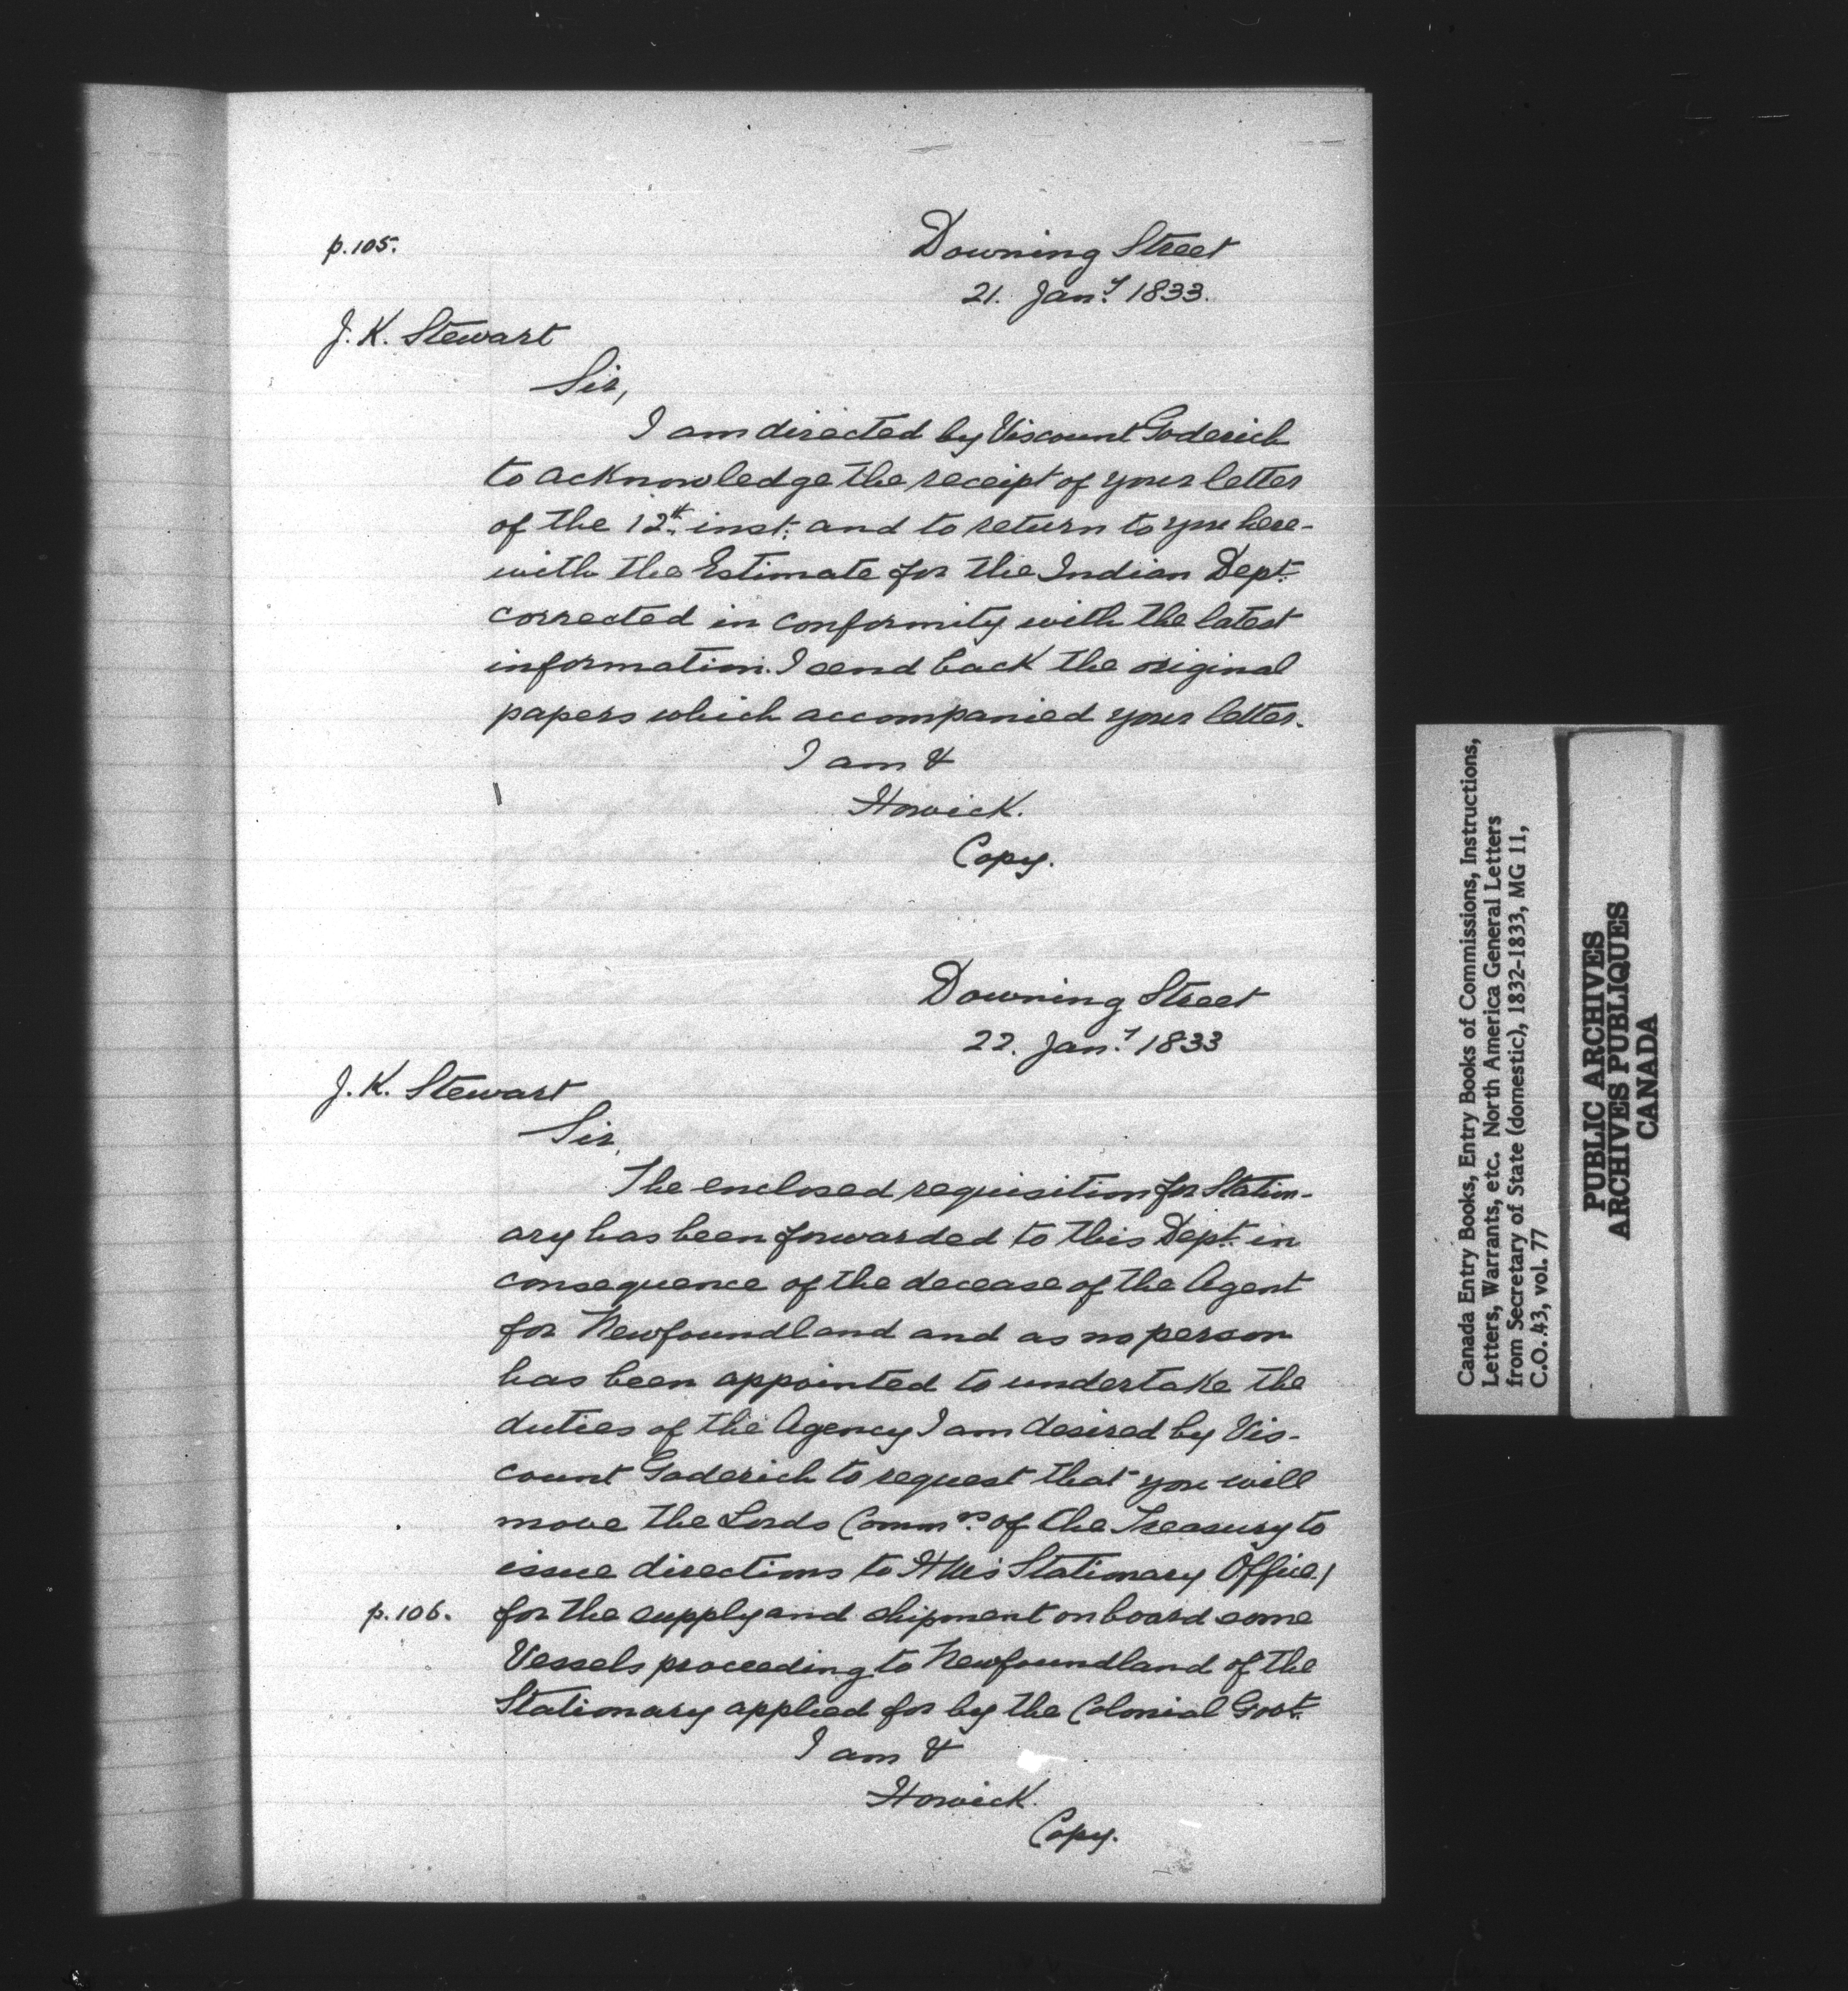 p.105.
Downing Street
21. Jan.y 1833.
J. K. Stewart
Sir,
I am directed by Viscount Goderich
to acknowledge the receipt of your letter
of the 12th. inst. and to return to you here-
with the Estimate for the Indian Dept.
corrected in conformity with the latest
information. I send back the original
papers which accompanied your letter.
I am &
Howick.
Copy.
Downing Street
22. Jan.y 1833
J. K. Stewart
Sir,
The enclosed requisition for Station-
ary has been forwarded to this Dept. in
consequence of the decease of the Agent
for Newfoundland and as no person
has been appointed to undertake the
duties of the Agency I am desired by Vis-
count Goderich to request that you will
move the Lords Commrs. of the Treasury to
issue directions to H M's Stationary Office/
p.106. for the supply and shipment on board some
Vessels proceeding to Newfoundland of the
Stationary applied for by the Colonial Govt.
I am &
Howick.
Copy.
Canada Entry Books, Entry Books of Commissions, Instructions,
Letters, Warrants, etc. North America General Letters
from Secretary of State (domestic), 1832-1833, MG 11,
C.O. 43, vol. 77
PUBLIC ARCHIVES
ARCHIVES PUBLIQUES
CANADA